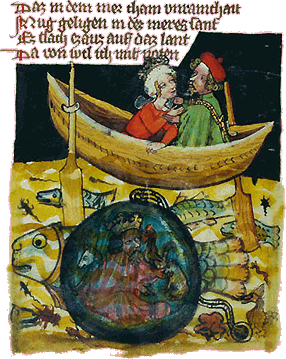 Daz in dem mer cham vnrainchait
Mug geligen in dez meres sant
Ez slach auf daz lant
Da von wil ich mit noten